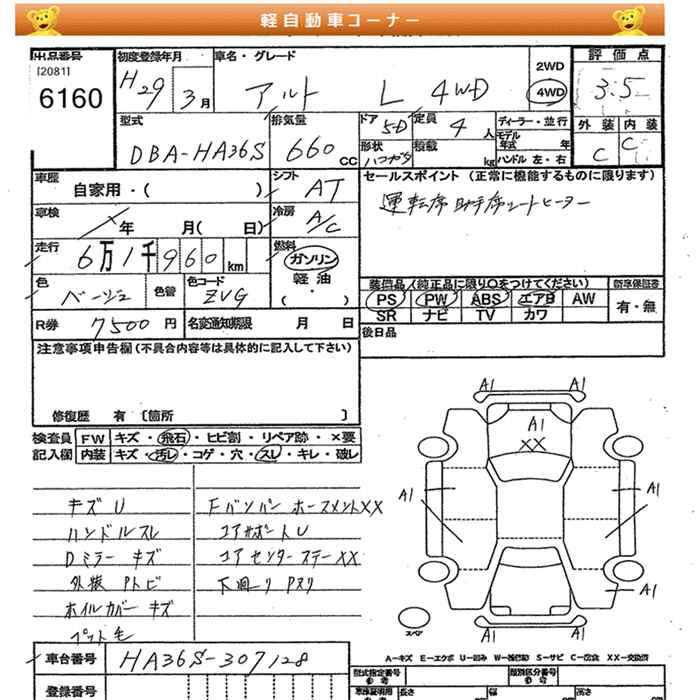 軽自動車コーナー
出品番号
[2081]
6160
初度登録年月
H29 3月
車名・グレード
アルト L 4WD
2WD
4WD
評価点
3.5
外装 内装
C C
型式
DBA-HA36S
排気量
660 CC
ドア
5D
形状
ハコガタ
定員
4 人
積載
kg
ディーラー・並行
モデル
年式 年
ハンドル 左・右
車歴
自家用・( )
シフト
AT
車検
年 月( 日)
冷房
A/C
走行
6万1千960 km
燃料
ガソリン
軽油
( ・ )
色
ベージュ
色替
色コード
ZVG
R券 7500 円
名変通知期限 月 日
セールスポイント (正常に機能するものに限ります)
運転席 助手席シートヒーター
装備品 (純正品に限り○をつけてください)
PS PW ABS エアB AW
SR ナビ TV カワ
新車保証書
有・無
後日品
注意事項申告欄 (不具合内容等は具体的に記入して下さい)
修復歴 有 〔箇所 〕
検査員
記入欄
FW キズ・飛石・ヒビ割・リペア跡・×要
内装 キズ・汚レ・コゲ・穴・スレ・キレ・破レ
キズ U
ハンドルスレ
Dミラー キズ
外装 Pトビ
ホイルカバー キズ
ペット毛
Fバンパー ホースメントXX
コアサポートU
コアセンターステーXX
下廻り Pスリ
A1 A1
A1
XX
A1 A1
A1
A1 A1
スペア
A-キズ E-エクボ U-凹み W-補修跡 S-サビ C-腐食 XX-交換済
車台番号 HA36S-307128
登録番号
型式指定番号
参考
類別区分番号
参考
車庫証明用
参考
長さ
幅
高さ